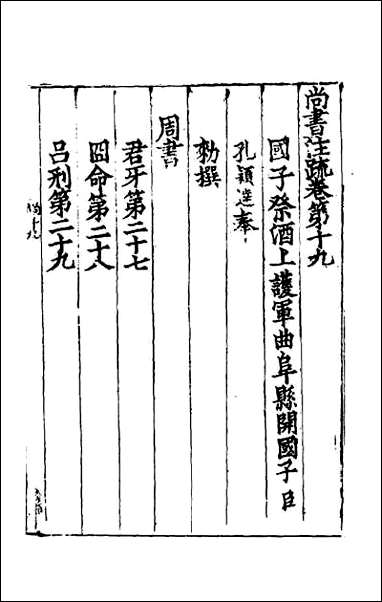 尚書注疏卷第十九
國子祭酒上護軍曲阜縣開國子臣
孔穎達奉
勑撰
周書
君牙第二十七
冏命第二十八
呂刑第二十九